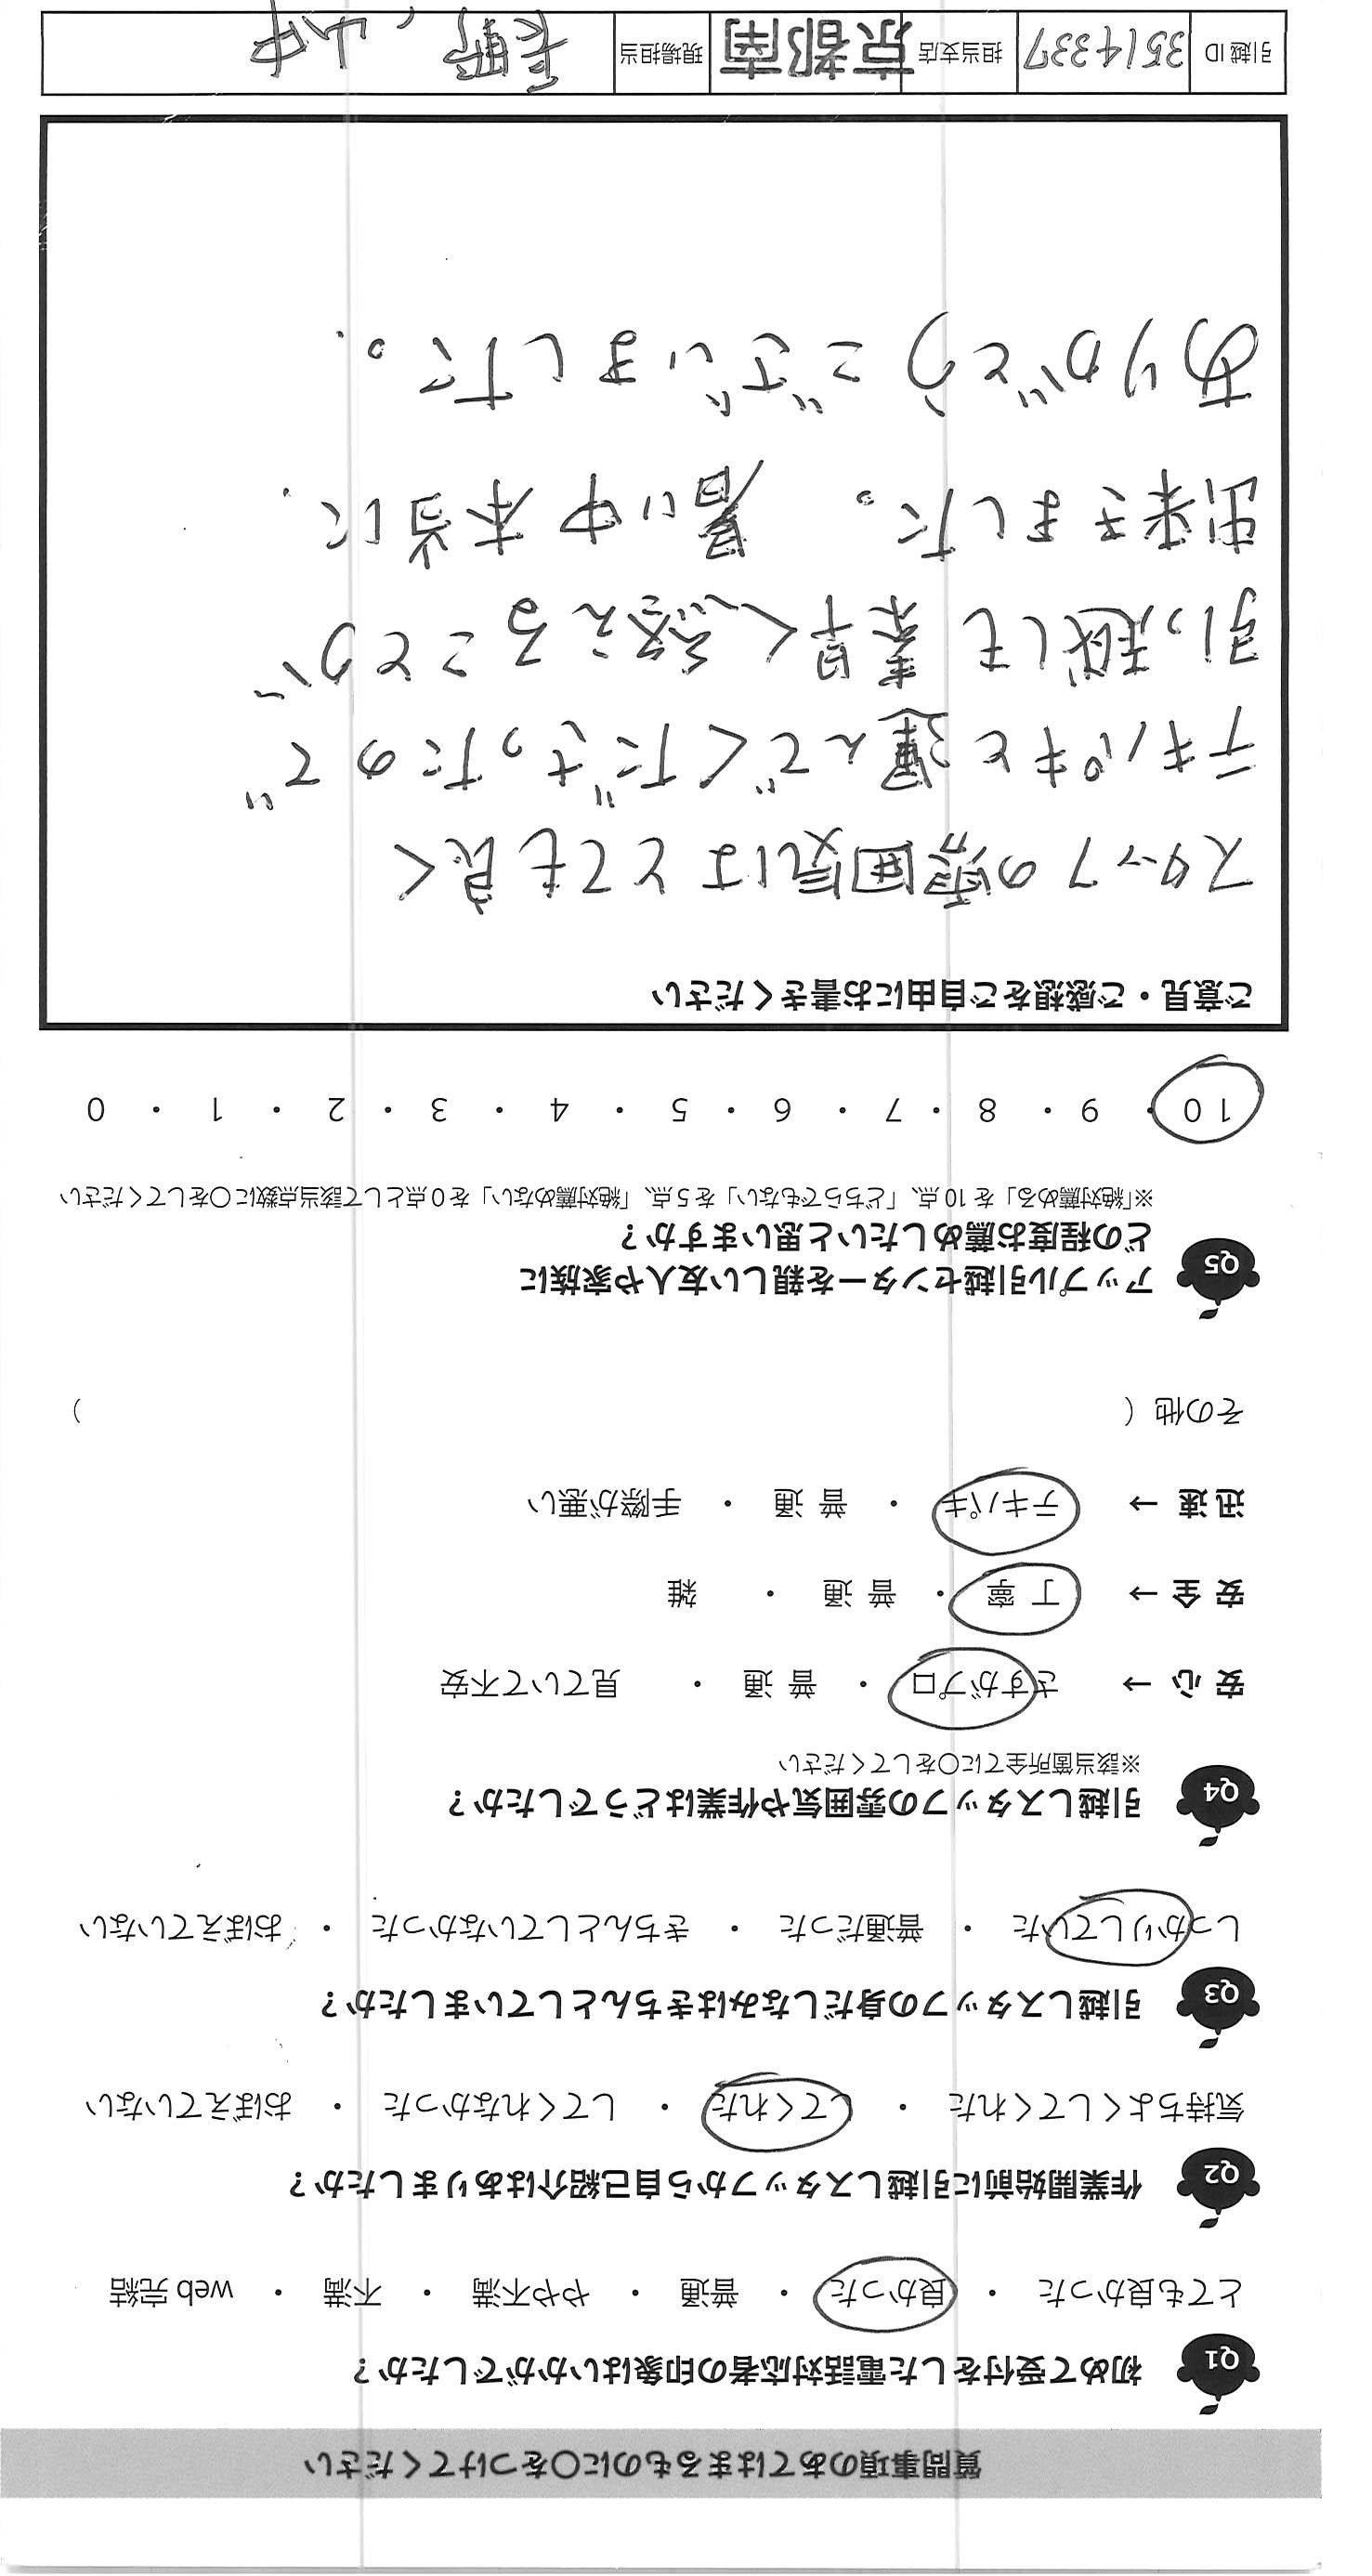 質問事項のあてはまるものに〇をつけてください
Q1 初めて受付をした電話対応者の印象はいかがでしたか?
とても良かった ・ 良かった ・ 普通 ・ やや不満 ・ 不満 ・ web 完結
Q2 作業開始前に引越しスタッフから自己紹介はありましたか?
気持ちよくしてくれた ・ してくれた ・ してくれなかった ・ おぼえていない
Q3 引越しスタッフの身だしなみはきちんとしていましたか?
しっかりしていた ・ 普通だった ・ きちんとしていなかった ・ おぼえていない
Q4 引越しスタッフの雰囲気や作業はどうでしたか?
※該当箇所全てに〇をしてください
安心→ さすがプロ ・ 普通 ・ 見ていて不安
安全→ 丁寧 ・ 普通 ・ 雑
迅速→ テキパキ ・ 普通 ・ 手際が悪い
その他 ( )
Q5 アップル引越センターを親しい友人や家族に
どの程度お薦めしたいと思いますか?
※「絶対薦める」を10点、「どちらでもない」を5点、「絶対薦めない」を0点として該当点数に〇をしてください
10 ・ 9 ・ 8 ・ 7 ・ 6 ・ 5 ・ 4 ・ 3 ・ 2 ・ 1 ・ 0
ご意見・ご感想をご自由にお書きください
スタッフの雰囲気はとても良く
テキパキと運んでくださったので
引っ越しも素早く終えることが
出来ました。 暑い中本当に
ありがとうございました。
引越ID 3514337 担当支店 京都南 現場担当 長野、山中